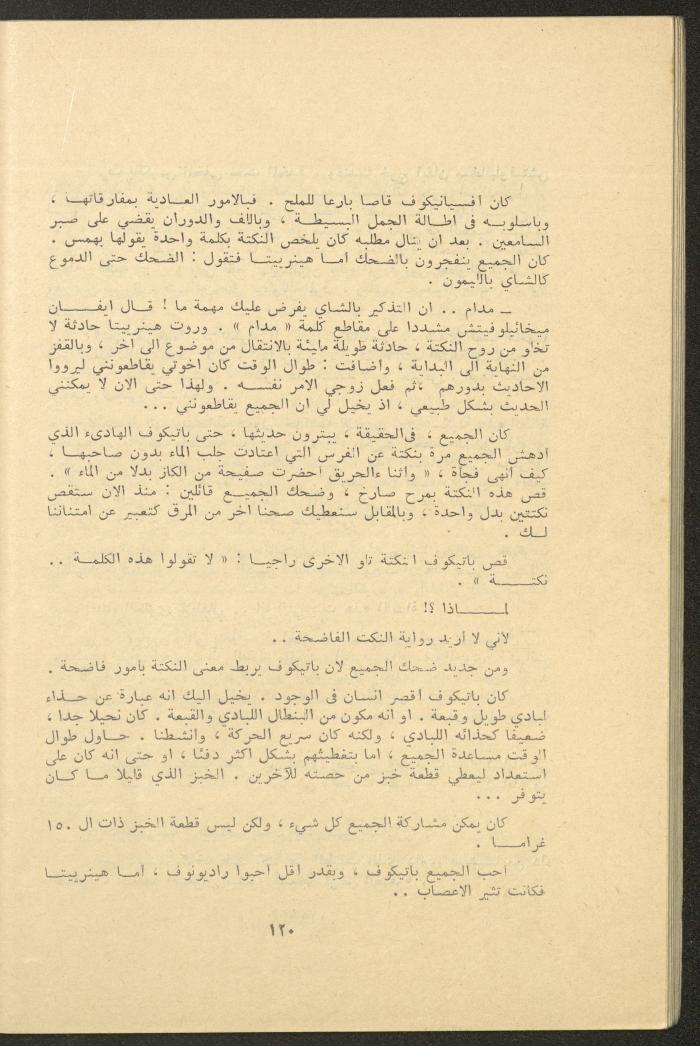 كان افسيانيكوف قاصا بارعا للملح . فبالامور العادية بمفارقاتها ،
وباسلوبه فى اطالة الجمل البسيطة ، وباللف والدوران يقضي على صبر
السامعين . بعد ان ينال مطلبه كان يلخص النكتة بكلمة واحدة يقولها بهمس .
كان الجميع ينفجرون بالضحك اما هينرييتا فتقول : الضحك حتى الدموع
كالشاي بالليمون .
ـ مدام .. ان التذكير بالشاي يفرض عليك مهمة ما ! قال ايفان
ميخائيلوفيتش مشددا على مقاطع كلمة « مدام » . وروت هينرييتا حادثة لا
تخلو من روح النكتة ، حادثة طويلة مليئة بالانتقال من موضوع الى اخر ، وبالقفز
من النهاية الى البداية ، واضافت : طوال الوقت كان اخوتي يقاطعونني ليرووا
الاحاديث بدورهم ، ثم فعل زوجي الامر نفسه . ولهذا حتى الان لا يمكنني
الحديث بشكل طبيعي ، اذ يخيل لي ان الجميع يقاطعونني ...
كان الجميع ، فى الحقيقة ، يبترون حديثها ، حتى باتيكوف الهادىء الذي
ادهش الجميع مرة بنكتة عن الفرس التي اعتادت جلب الماء بدون صاحبها ،
كيف انهى فجأة ، « واثنا ءالحريق احضرت صفيحة من الكاز بدلا من الماء » .
قص هذه النكتة بمرح صارخ ، وضحك الجميع قائلين : منذ الان ستقص
نكتتين بدل واحدة ، وبالمقابل سنعطيك صحنا اخر من المرق كتعبير عن امتناننا
لك .
قص باتيكوف النكتة تلو الاخرى راجيا : « لا تقولوا هذه الكلمة ..
نكتة » .
لماذا ؟!
لاني لا أريد رواية النكت الفاضحة ..
ومن جديد ضحك الجميع لان باتيكوف يربط معنى النكتة بامور فاضحة .
كان باتيكوف اقصر انسان فى الوجود . يخيل اليك انه عبارة عن حذاء
لبادي طويل وقبعة . او انه مكون من البنطال اللبادي والقبعة . كان نحيلا جدا ،
ضعيفا كحذائه اللبادي ، ولكنه كان سريع الحركة ، وانشطنا . حاول طوال
الوقت مساعدة الجميع ، اما بتغطيتهم بشكل اكثر دفئا ، او حتى انه كان على
استعداد ليعطي قطعة خبز من حصته للآخرين . الخبز الذي قليلا ما كان
يتوفر ...
كان يمكن مشاركة الجميع كل شيء ، ولكن ليس قطعة الخبز ذات ال ١٥٠
غراما .
احب الجميع باتيكوف ، وبقدر اقل احبوا راديونوف ، اما هينرييتا
فكانت تثير الاعصاب ..
١٢٠